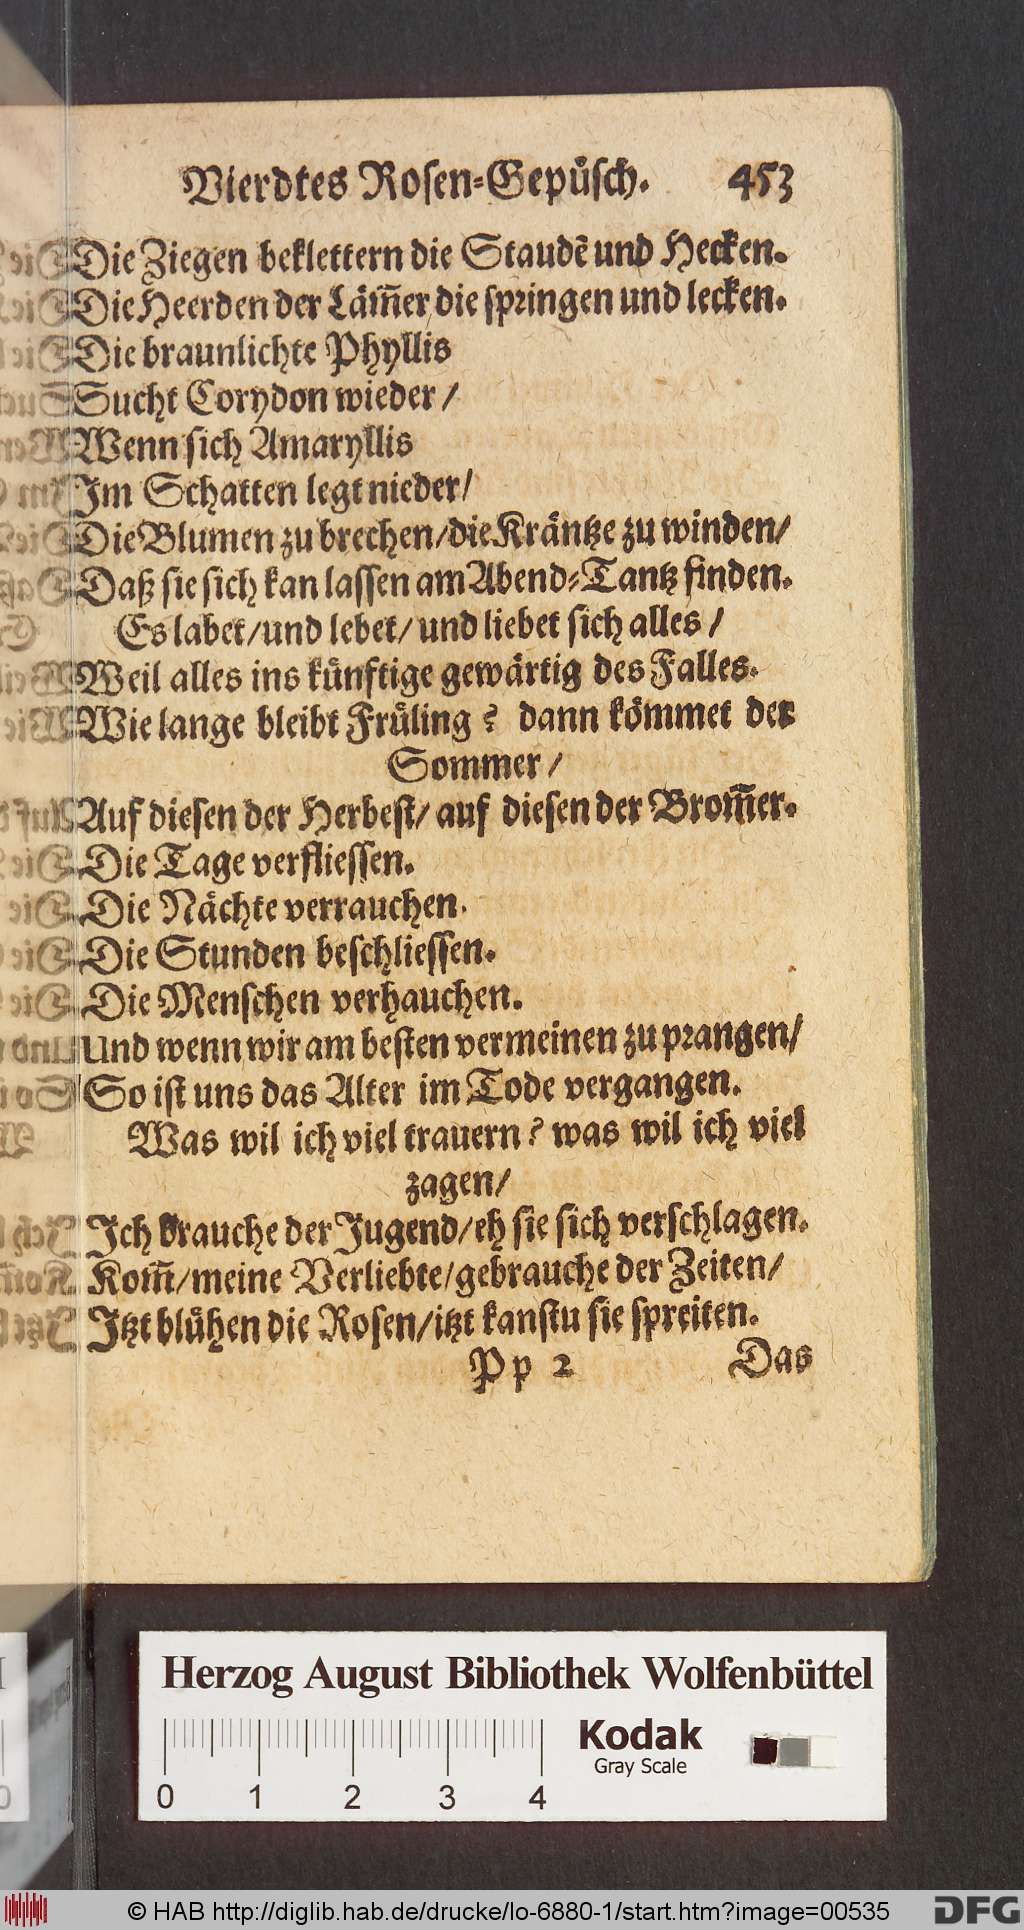 Vierdtes Rosen-Gepüsch. 453
Die Ziegen beklettern die Staudẽ und Hecken.
Die Heerden der Läm̃er die springen und lecken.
Die braunlichte Phyllis
Sucht Corydon wieder /
Wenn sich Amaryllis
Im Schatten legt nieder/
Die Blumen zu brechen/die Kräntze zu winden/
Daß sie sich kan lassen am Abend-Tantz finden.
Es labet/und lebet/ und liebet sich alles /
Weil alles ins künftige gewärtig des Falles.
Wie lange bleibt Früling ? dann kömmet der
Sommer /
Auf diesen der Herbest/ auf diesen der Brom̃er.
Die Tage verfliessen.
Die Nächte verrauchen.
Die Stunden beschliessen.
Die Menschen verhauchen.
Und wenn wir am besten vermeinen zu prangen/
So ist uns das Alter im Tode vergangen.
Was wil ich viel trauern? was wil ich viel
zagen/
Ich brauche der Jugend/eh sie sich verschlagen.
Kom̃/meine Verliebte/gebrauche der Zeiten/
Itzt blühen die Rosen/itzt kanstu sie spreiten.
Pp 2 Das
Herzog August Bibliothek Wolfenbüttel
Kodak
Gray Scale
0 1 2 3 4
© HAB http://diglib.hab.de/drucke/lo-6880-1/start.htm?image=00535
DFG